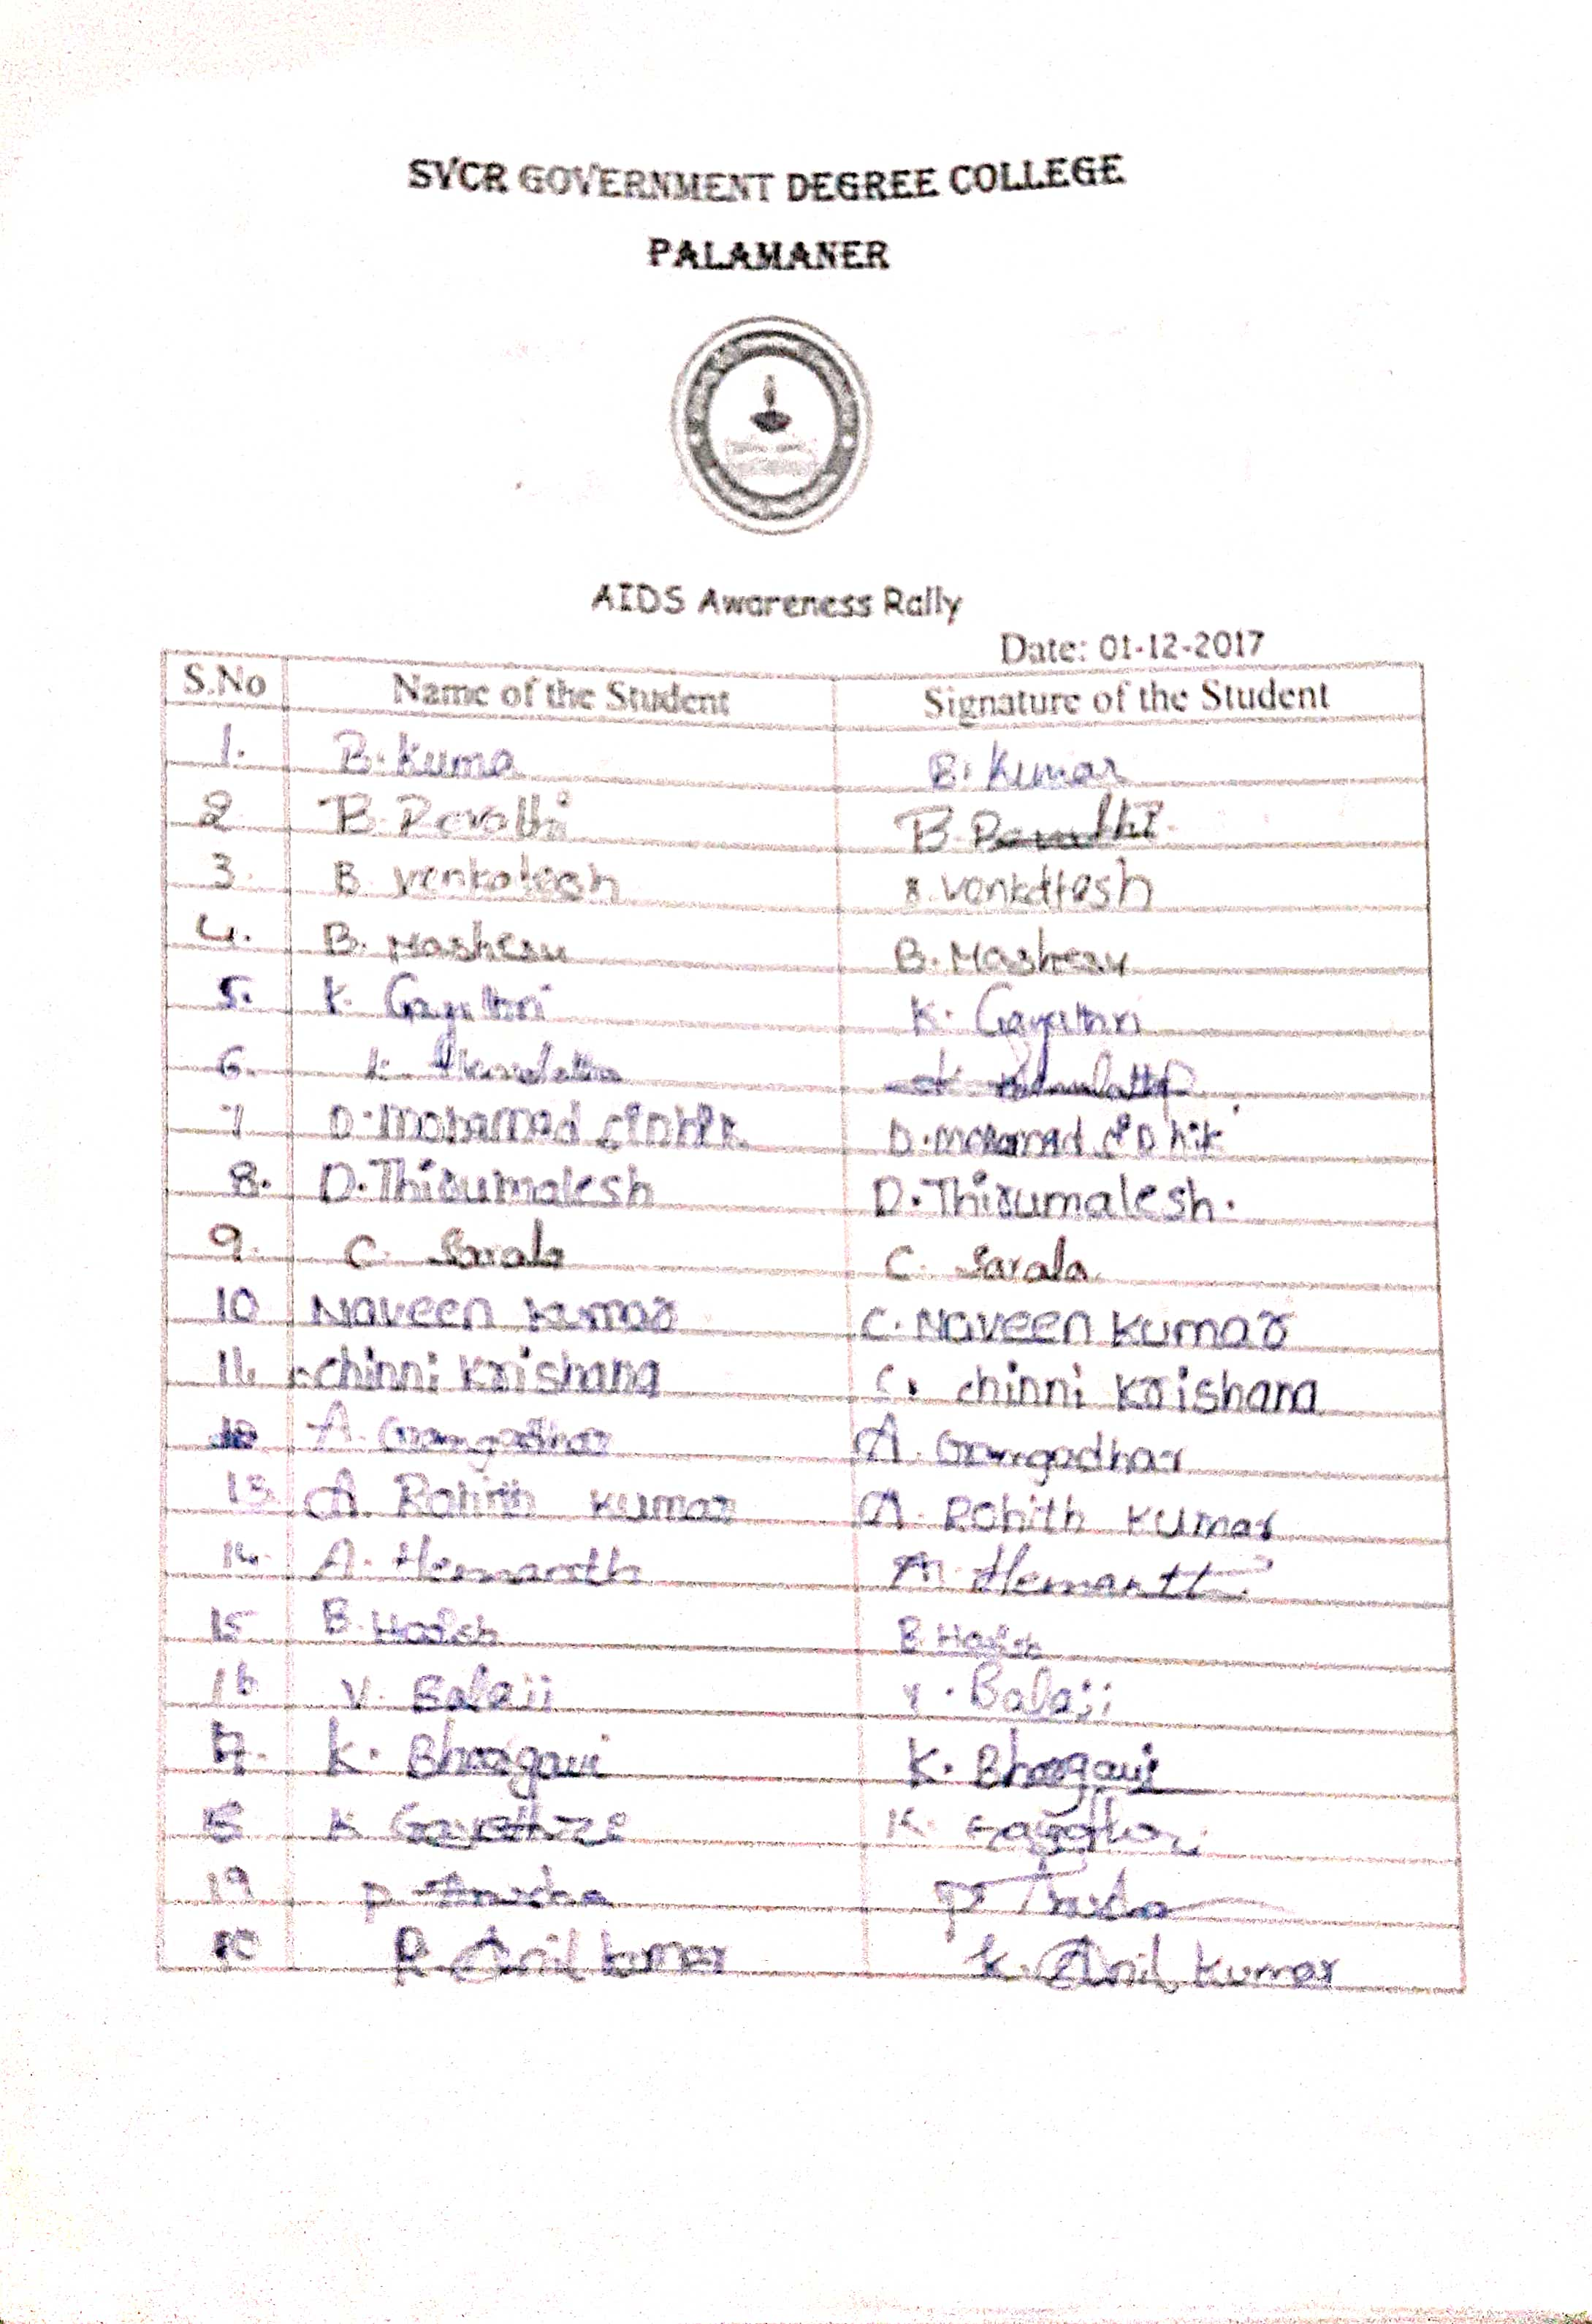 SVCR GOVERNMENT DEGREE COLLEGE
PALAMANER
AIDS Awareness Rally
Date: 01-12-2017
S.No Name of the Student Signature of the Student
1. B. Kuma B. Kumar
2 B. Revathi B.
3. B. Venkatesh B. Venkattesh
4. B. Mashesu B. Mashesu
5. K. Gayathri K. Gayathri
6. K.
7 D. Mohamad D. Mohamad
8. D. Thirumalesh D. Thirumalesh.
9. C. Sarala C. Sarala
10 Naveen Kumar C. Naveen Kumar
11. chinni Krishana C. chinni Krishana
12 A. Gangadhar A. Gangadhar
13. A. Rohith Kumar A. Rohith Kumar
14. A. Hemanth A. Hemanth
15 B. Harish B. Harish
16 V. Balaji V. Balaji
17. K. Bhargavi K. Bhargavi
18 K Gayathri K. Gayathri
19 P. P
20 Anil kumar K. Anil kumar